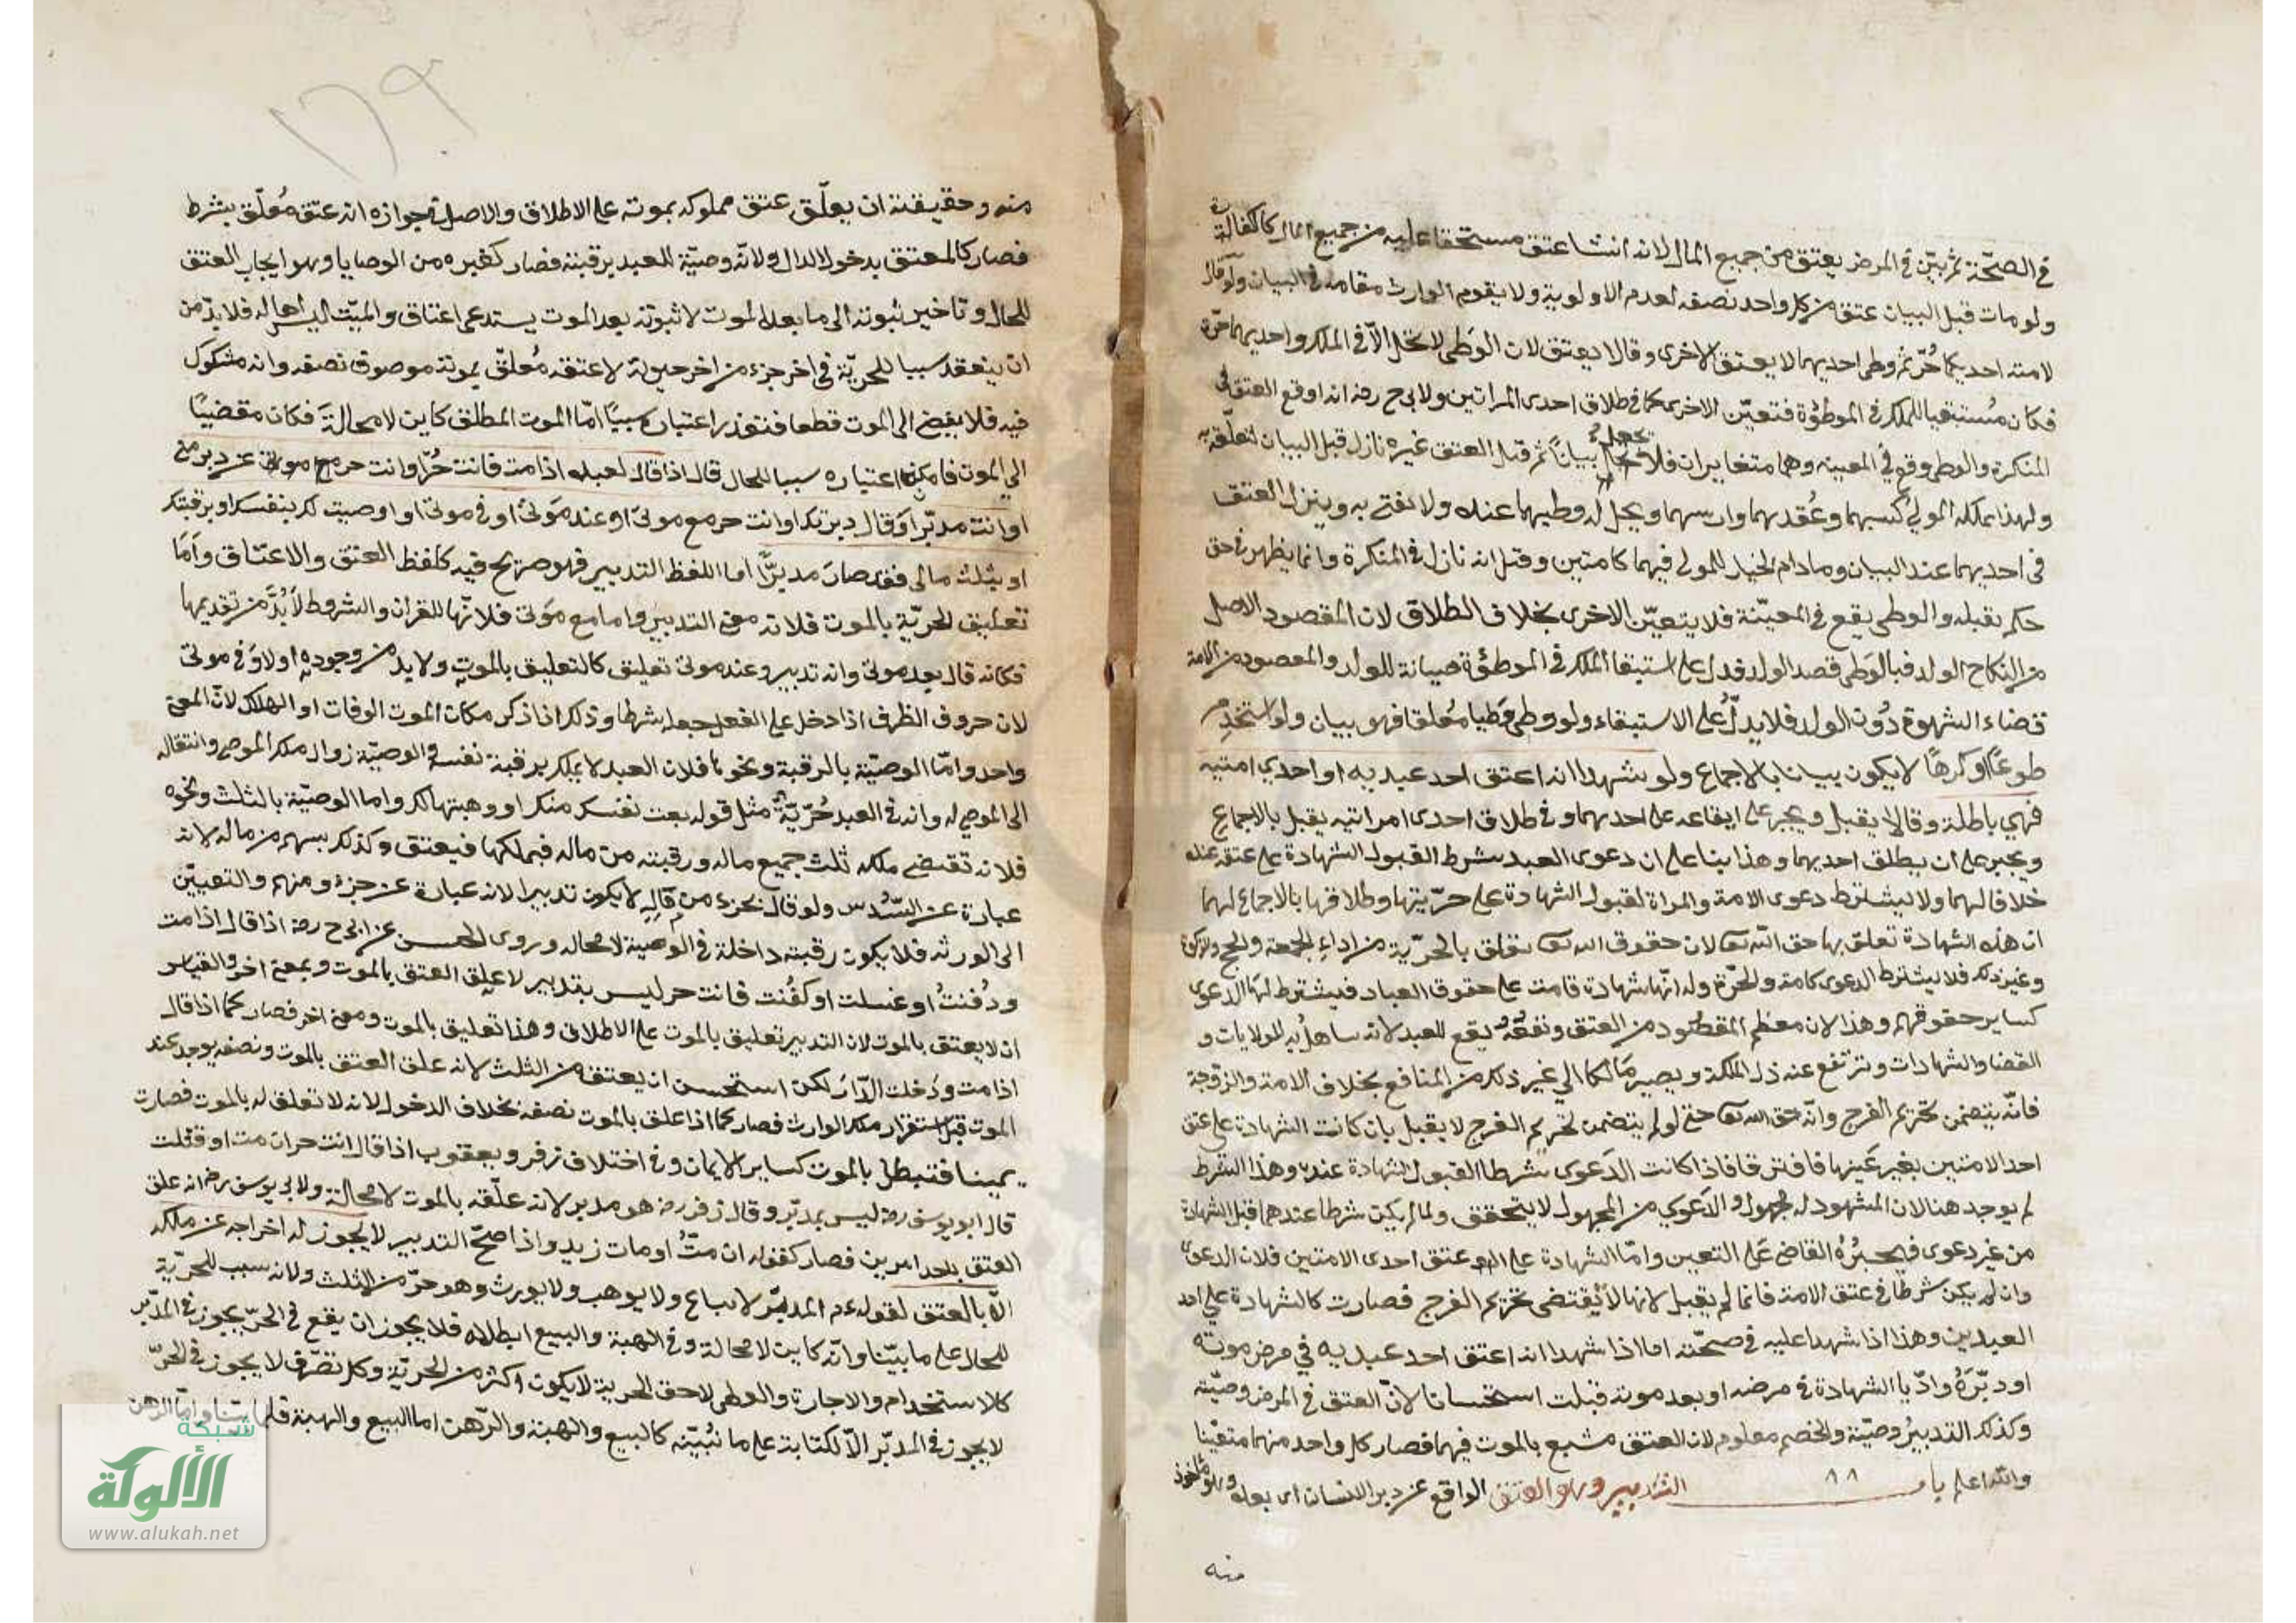 في الصحّة ثم بيّن في المرض يعتق من جميع المال لانه انشا عتق مستحقا عليه من جميع المال كالكفالة
ولو مات قبل البيان عتق من كل واحد نصفه لعدم الاولوية ولا يقوم الوارث مقامه في البيان ولو قال
لامته احديكما حُرّة ثم وطى احديهما لا يعتق الاخرى وقالا يعتق لان الوطى لا يحل الّا في الملك واحديهما حرّة
فكان مُستبقيا للملك في الموطؤة فتعيّن الاخرى كما في طلاق احدى المراتين ولابي ح رضه انه اوقع العتق في
المنكرة والوطى وقع في المعينه وهما متغايران فلا يجعل بيانًا ثم قيل العتق غيره نازل قبل البيان لتعلّقه به
ولهذا يملك المولي كسبهما وعُقدهما وارشهما ويحل له وطيهما عنده ولا يفتى به وينزل العتق
في احديهما عند البيان وما دام الخيار للمولى فيهما كامتين وقيل انه نازل في المنكرة وانما يظهر في حق
حكم يقبله والوطى يقع في المعيّنة فلا يتعيّن الاخرى بخلاف الطلاق لان المقصود الاصلي
من النكاح الولد فبالوَطى قصد الولد فدل على استبقا الملك في الموطؤة صيانة للولد والمقصود من الامة
قضاء الشهوة دُون الولد فلا يدلُّ على الاستبقاء ولو وطى وَطيا مُعلقا فهو بيان ولو استخدم
طوعًا او كرهًا لا يكون بيانا بالاجماع ولو شهدا انه اعتق احد عبديه او احدي امتيه
فهي باطلة وقالا يقبل ويجبر على ايقاعه على احدهما وفي طلاق احدى امراتيه يقبل بالاجماع
ويجبر على ان يطلق احديهما وهذا بنا على ان دعوى العبد بشرط القبول الشهادة على عتقه عنده
خلافا لهما ولا يشترط دعوى الامة والمراة لقبول الشهادة على حرّيتها وطلاقها بالاجماع لهما
ان هذه الشهادة تعلق بها حق الله تع لان حقوق الله تع تعلق بالحرّية من اداء الجمعة والحج والزكوة
وغير ذلك فلا يشترط الدعوى كامة والحرّة وله انّها شهادة قامت على حقوق العباد فيشترط لها الدعوى
كساير حقوقهم وهذا لان معظم المقصُود من العتق ونفعُهُ يقع للعبد لانه ساهل به للولايات و
القضا والشهادات وترتفع عنه ذل الملكة ويصير مَالكا الي غير ذلك من المنافع بخلاف الامة والزوجة
فانّه يتضمن تحريم الفرج وانّه حق الله تع حتى لو لم يتضمن تحريم الفرج لا يقبل بان كانت الشهادة على عتق
احد الامتين بغير عَينها فافترقا فاذا كانت الدَعوى بشرطا القبول الشهادة عنده وهذا الشرط
لم يوجد هنا لان المشهود له مجهول والدّعوي من المجهول لا يتحقق ولما لم يكن شرطا عندهما قبل الشهادة
من غير دعوى فيجبرُهُ القاضى عَلى التعيين وامّا الشهادة على عتق احدى الامتين فلان الدعوى
وان لم يكن شرطا في عتق الامة فانما لم يقبل لانها لا يقتضى تحريم الفرج فصارت كالشهادة علي احد
العبدين وهذا اذا شهدا عليه في صحّته اما اذا شهدا انه اعتق احد عبديه في مرض موته
او دبّرَهُ وادّيا الشهادة في مرضه او بعد موته قبلت استحسانا لانّ العتق في المرض وصيّة
وكذلك التدبيرُ وصيّة والخصم معلوم لان العتق مشيع بالموت فيهما فصار كل واحد منهما متعيّنا
والله اعلم باب ٨٨ التدبير وهو العتق الواقع عن دبر الانسان اى بعده وهو ماخوذ
منه
منه وحقيقته ان يعلّق عتق مملوكه بموته على الاطلاق والاصل في جوازه انه عتق مُعلّق بشرط
فصار كالمعتق بدخول الدار ولانّه وصيّة للعبد برقبته فصار كغيره من الوصايا وهو ايجاب العتق
للحال وتاخير ثبوته الى ما بعد الموت لا ثبوته بعد الموت يستدعى اعتاق والميّت ليس اهاله فلا بدّ من
ان ينعقد سببا للحريّة في اخر جزء من اخر حيوة لا عتقه مُعلّق بموته موصوف نصفه وانه مشكوك
فيه فلا يفضى الى الموت قطعا فتعذر اعتباره سببًا امّا الموت المطلق كاين لا محالةَ فكان مقضيًا
الى الموت فامكن اعتباره سببا للحال قال اذا قال لعبده اذا مت فانت حُرّ او انت حر مع موتى عن دبر منى
او انت مدبّر او قال دبرتك او انت حر مع موتىِ او عند مَوتىُ او في موتى او اوصيت لك بنفسك او برقبتك
او بثلث مالى فقد صارَ مدبرًّا اما اللفظ التدبير فهو صريح فيه كلفظ العتق والاعتاق وامّا
تعليق الحريّة بالموت فلانه معنى التدبير واما مع مَوتى فلانّها للقران والشروط لا بُدَّ من تقديمها
فكانه قال بعد موتى وانه تدبير وعند موتى تعليق كالتعليق بالموت ولا بد من وجوده اولا وَ في موتى
لان حروف الظرف اذا دخل على الفعل جعله شرطا وذلك اذا ذكر مكان الموت الوفات او الهلاك لانّ المعنى
واحد وامّا الوصيّة بالرقبة ونحوها فلان العبد لا يملك برقبة نفسه والوصيّة زوال ملك الموصى وانتقاله
الى الموصى له وانه في العبد حُرّيّةٌ مثل قوله بعت نفسك منك او وهبتها لك واما الوصيّة بالثلث ونحوه
فلانه تقتضى ملكه ثلث جميع ماله ورقبته من ماله فيملكها فيعتق وكذلك بسهم من ماله لانه
عبارة عن السُدس ولو قال بجزء من ماله لا يكون تدبيرا لانه عبارة عن جزء ومنهم والتعييّن
الى الورثه فلا يكون رقبته داخلة في الوصية لا محاله وروى الحسن عن ابى ح رضه اذا قال اذا مت
ودُفنتُ او غسلت او كفُنت فانت حر ليس بتدبير لا علق العتق بالموت وبمعنى اخر والقياس
ان لا يعتق بالموت لان التدبير تعليق بالموت على الاطلاق وهذا تعليق بالموت ومعنى اخر فصار كما اذا قال
اذا مت ودَخلت الدّارَ لكن استحسن ان يعتق من الثلث لانه علق العتق بالموت ونصفه يوجد عند
الموت قبل استقرار ملك الوارث فصار كما اذا علق بالموت نصفه بخلاف الدخول لانه لا تعلق له بالموت فصارت
يمينا فتبطل بالموت كساير الايمان وفي اختلاف زفر ويعقوب اذا قال انت حر ان مت او قتلت
قال ابو يوسف رضه ليس بمدبّر وقال زفر رضه هو مدبر لانه علّقه بالموت لا محالة ولابى يوسف رضه انه علق
العتق باحد امرين فصار كقوله ان متُّ او مات زيد واذا صحّ التدبير لا يجوز له اخراجه عن ملكه
الّا بالعتق لقوله ءم المدبّر لا يباع ولا يوهب ولا يورث وهو حرّ من الثلث ولانه سبب للحريّة
للحال على ما بيّنا وانّه كاين لا محالة وفي الهبة والبيع ابطالاه فلا يجوز ان يقع في الحرّ يجوز في المدبّر
كالاستخدام والاجارة والوطى لا حق الحرية لا يكون اكثر من الحريّة وكل تصّرف لا يجوز في الحرّ
لا يجوز في المدبّر الّا لكتابة على ما نبُيّنه كالبيع والهبة والرّهن اما البيع والهبة فلما بيّنا وامّا الرهن
شبكة
الألوكة
www.alukah.net